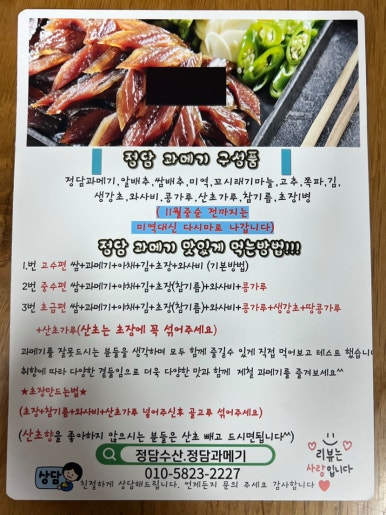 정담 과메기 구성품
정담과메기,알배추,쌈배추,미역,꼬시래기마늘,고추,쪽파,김,
생강초,와사비,콩가루,산초가루,참기름,초장1병
( 11월중순 전까지는
미역대신 다시마로 나갑니다)
정담 과메기 맛있게 먹는방법!!!
1.번 고수편 쌈+과메기+야채+김+초장+와사비 (기본방법)
2번 중수편 쌈+과메기+야채+김+초장(참기름)+와사비+콩가루
3번 초급편 쌈+과메기+야채+김+초장(참기름)+와사비+콩가루+생강초+땅콩가루
+산초가루(산초는 초장에 꼭 섞어주세요)
과메기를 잘못드시는 분들을 생각하며 모두 함께 즐길수 있게 직접 먹어보고 테스트 했습니다
취향에 따라 다양한 곁들임으로 더욱 다양한 맛과 함께 제철 과메기를 즐겨보세요^^
★초장만드는법★
(초장+참기름+와사비+산초가루 넣어주신후 골고루 섞어주세요)
(산초향을 좋아하지 않으시는 분들은 산초 빼고 드시면됩니다^^)
정담수산.정담과메기
리뷰는
사랑입니다
상담
010-5823-2227
친절하게 상담해드립니다. 언제든지 문의 주세요 감사합니다